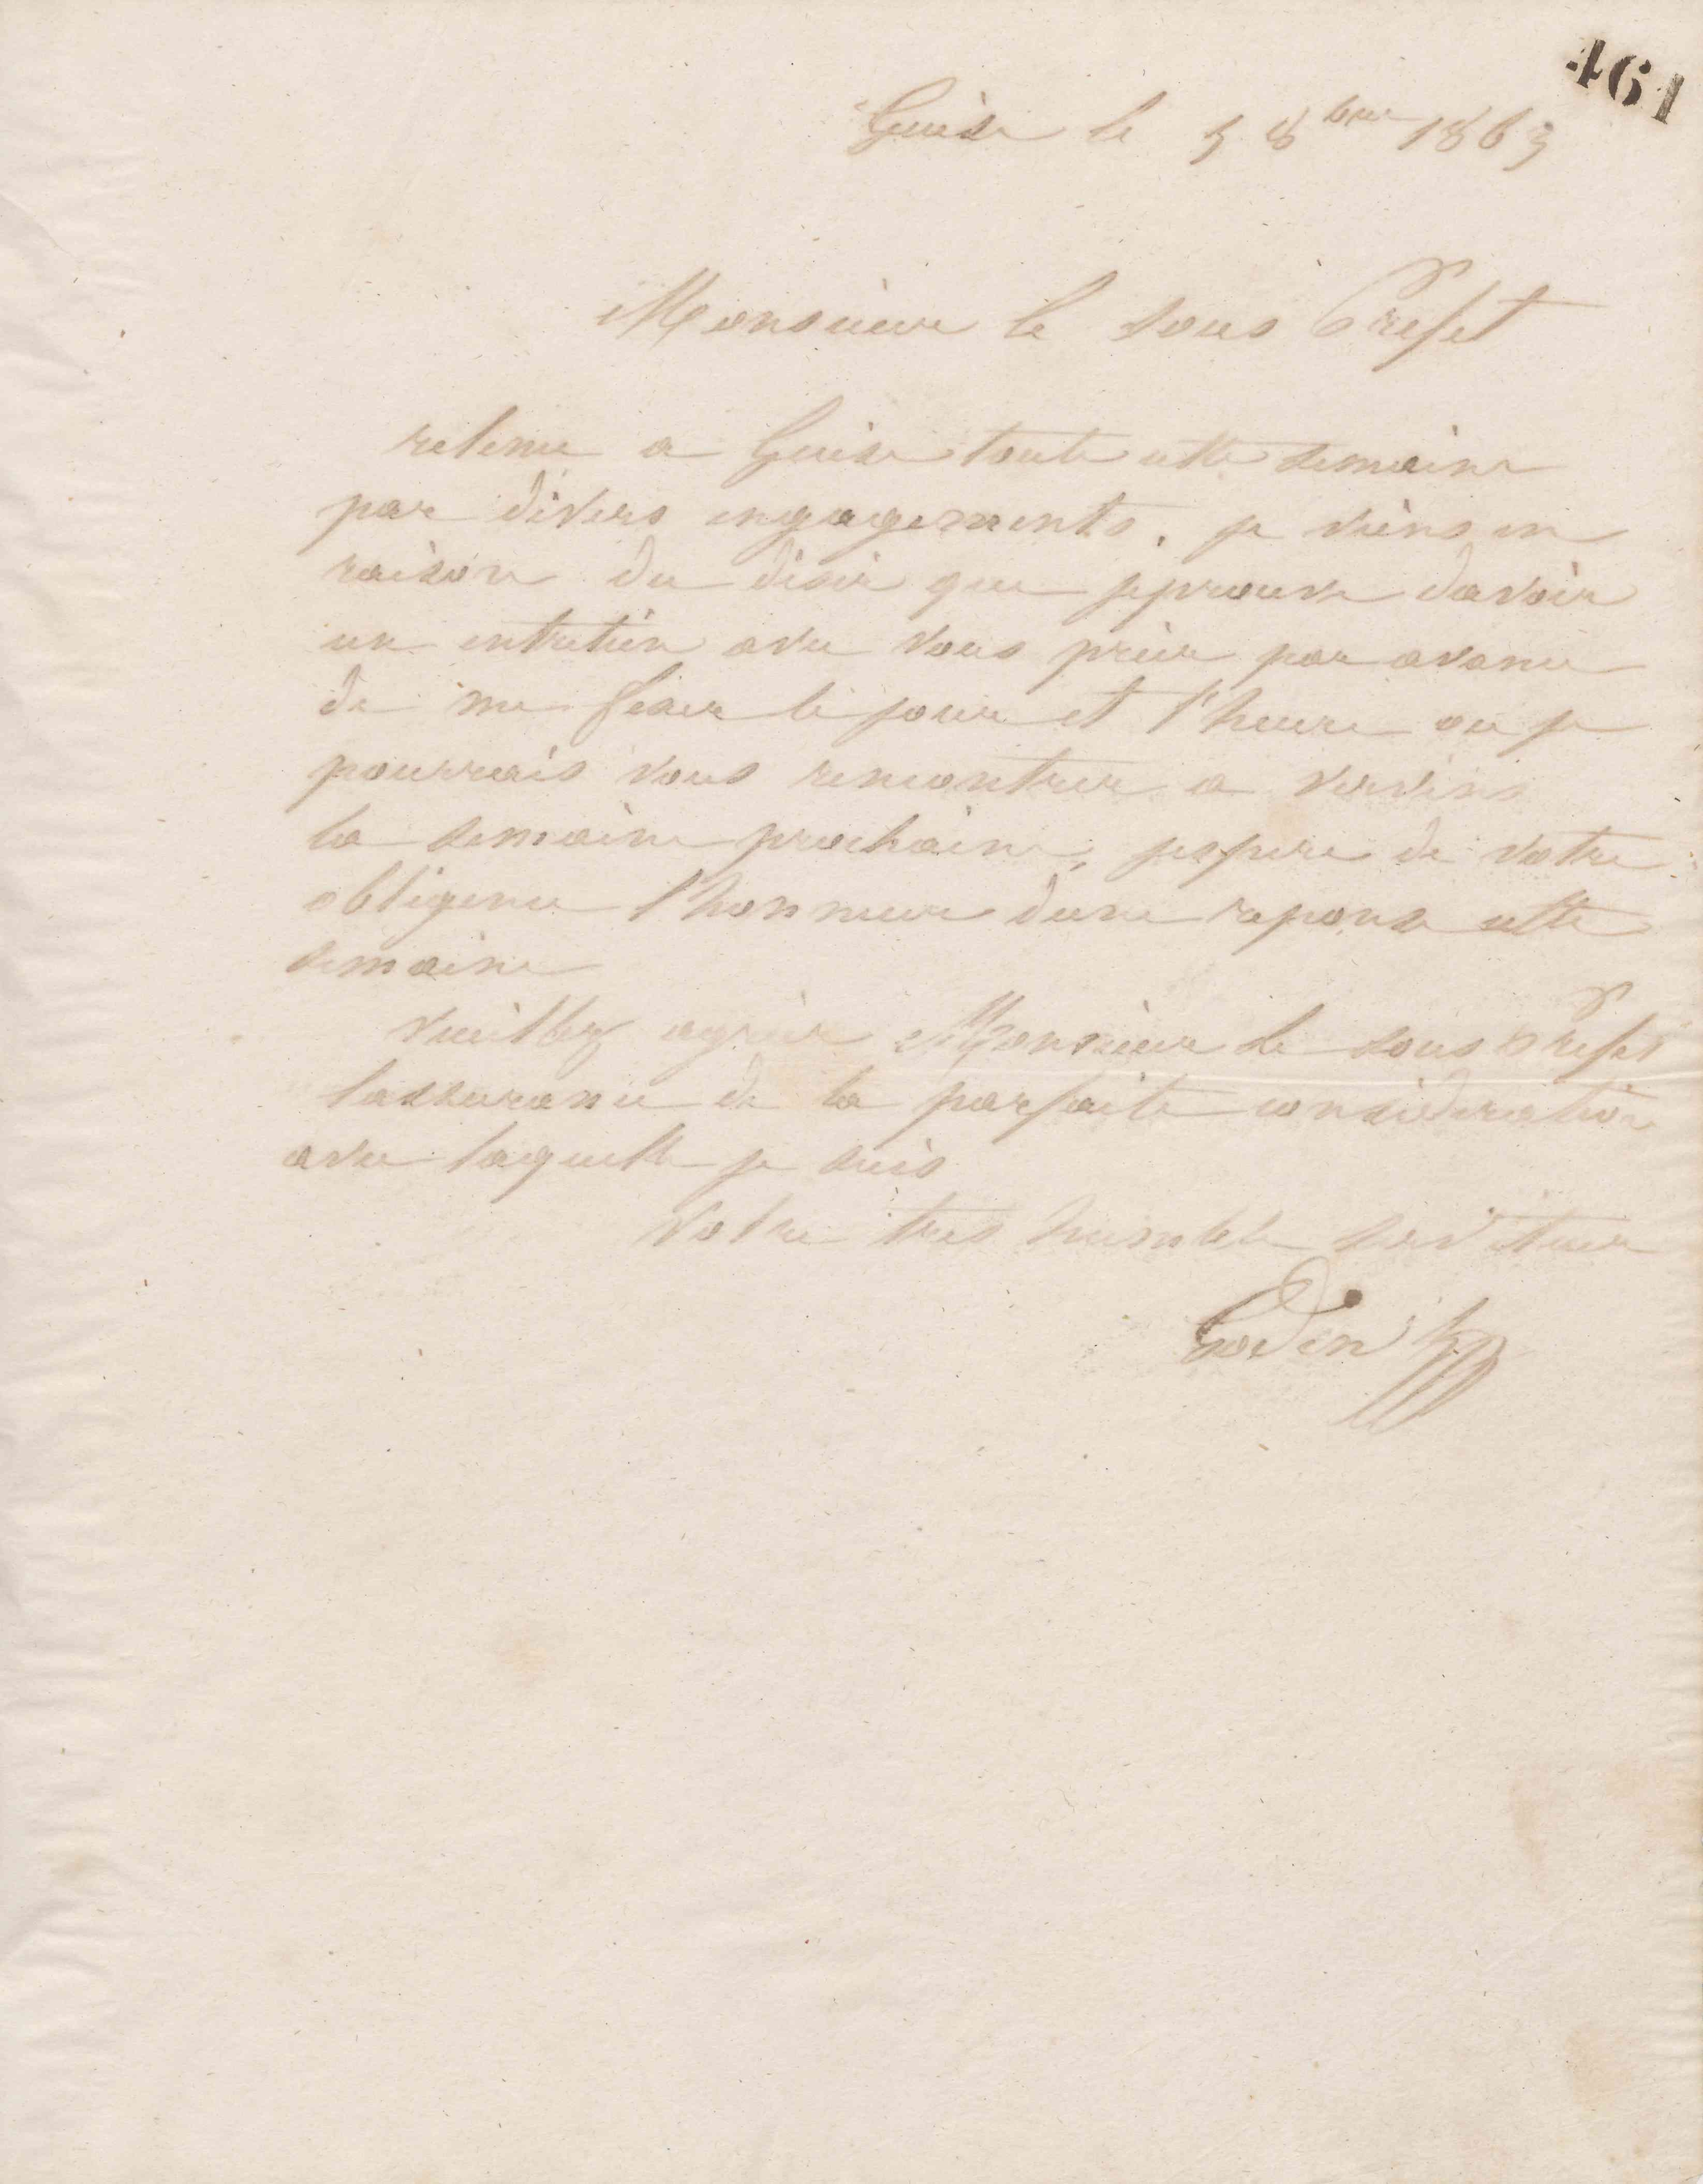 461
Guise le 5 8bre 1863
Monsieur le sous Prefet
retenu a Guise toute cette semaine
par divers engagements. je viens en
raison du désir que jeprouve davoir
un entretien avec vous prier par avance
de me fixer le jour et l'heure ou je
pourrais vous rencontrer a Vervins
la semaine prochaine, jespere de votre
obligence l'honneur dune reponse cette
semaine
Veuillez agréer Monsieur le sous Prefet
lassurance de la parfaite consideration
avec laquelle je suis
Votre tres humble serviteur
Godin